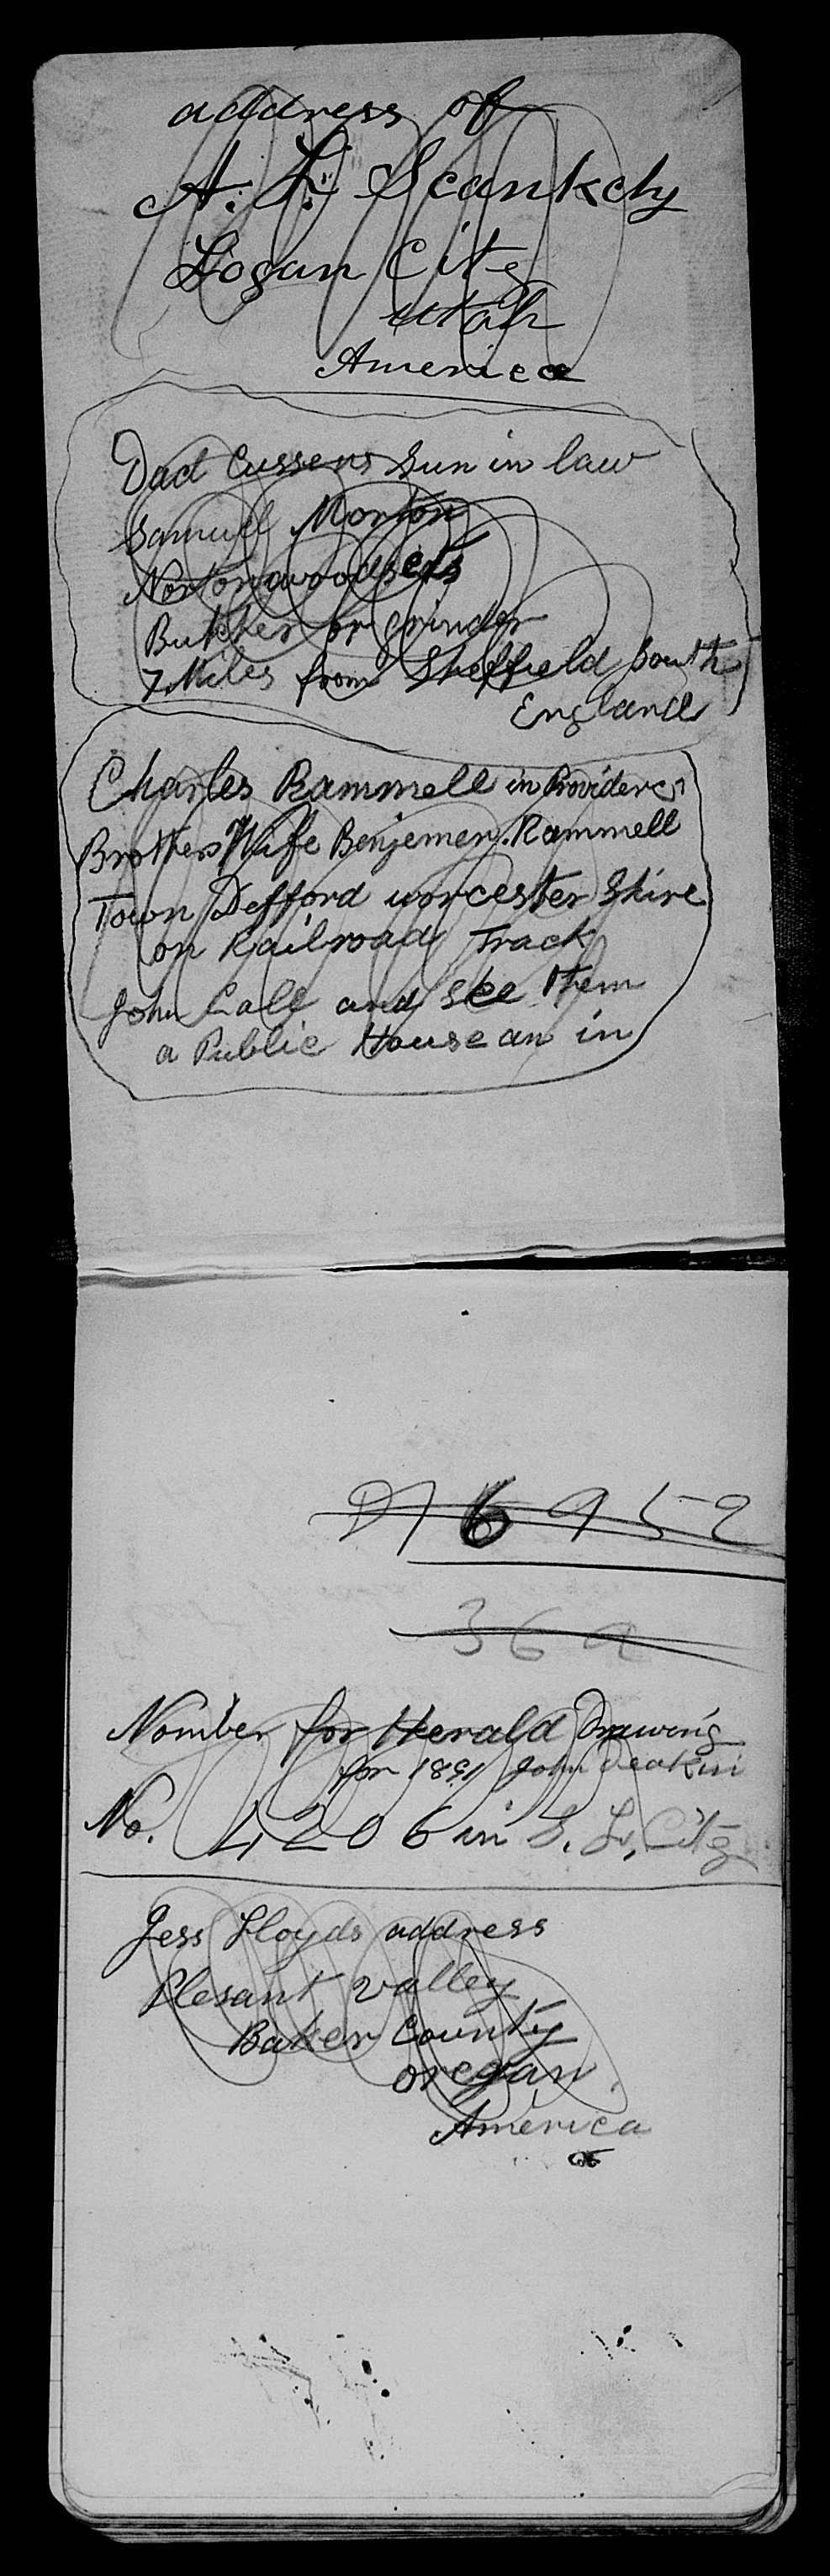 address of
A. L. Scankchy
Logan City
Utah
America
Dad Cussens Sun in law
Samuel Morton
Norton woodseats
Butcher or grinder
7 Miles from Sheffield South
England
Charles Rammell in Providence
Brothers Wife Benjemen Rammell
Town Defford worcester Shire
on Railroad Track
John Call and See them
a Public House an in
6952
369
Nomber for Herald Drawing
for 1891 John Deakin
No. 4206 in S. L. City
Jess Lloyds address
Plesant valley
Baker County
oregan.
America